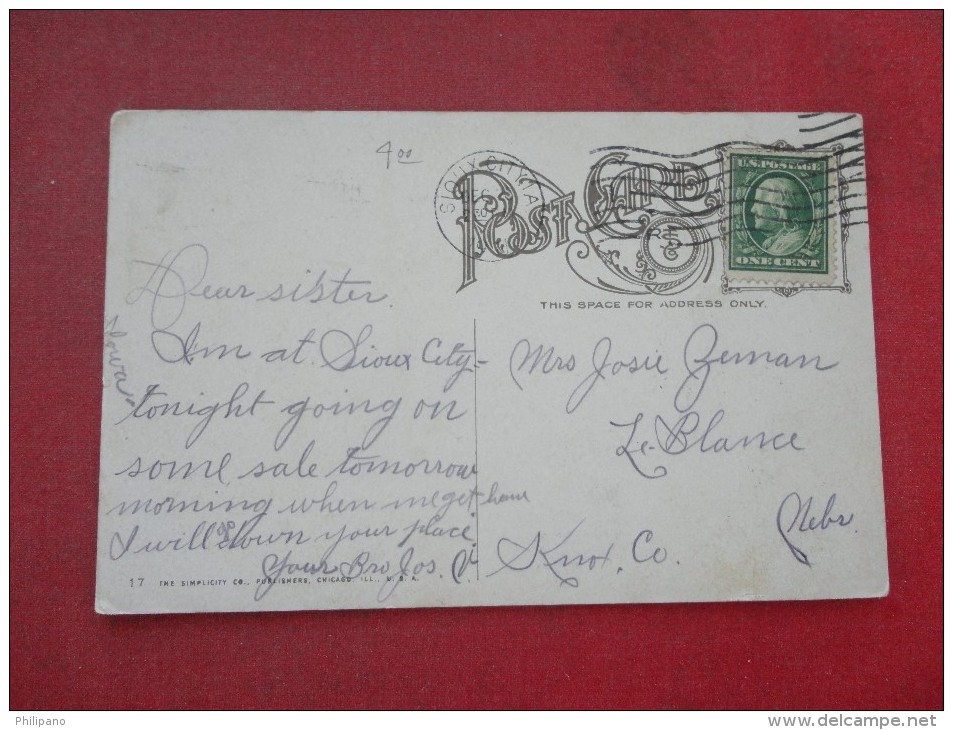 4 00
SIOUX CITY, IA
POST CARD
U.S. POSTAGE
ONE CENT
THIS SPACE FOR ADDRESS ONLY.
Dear sister.
I.m at Sioux City-
Iowa
tonight going on
some sale tomorrow
morning when me get home
I will go down your place
Your Bro Jos. V.
Mrs Josie Zeman
Le-Blance
Knox. Co.
Nebr
17 THE SIMPLICITY CO., PUBLISHERS, CHICAGO, ILL., U. S. A.
Philipano
www.delcampe.net